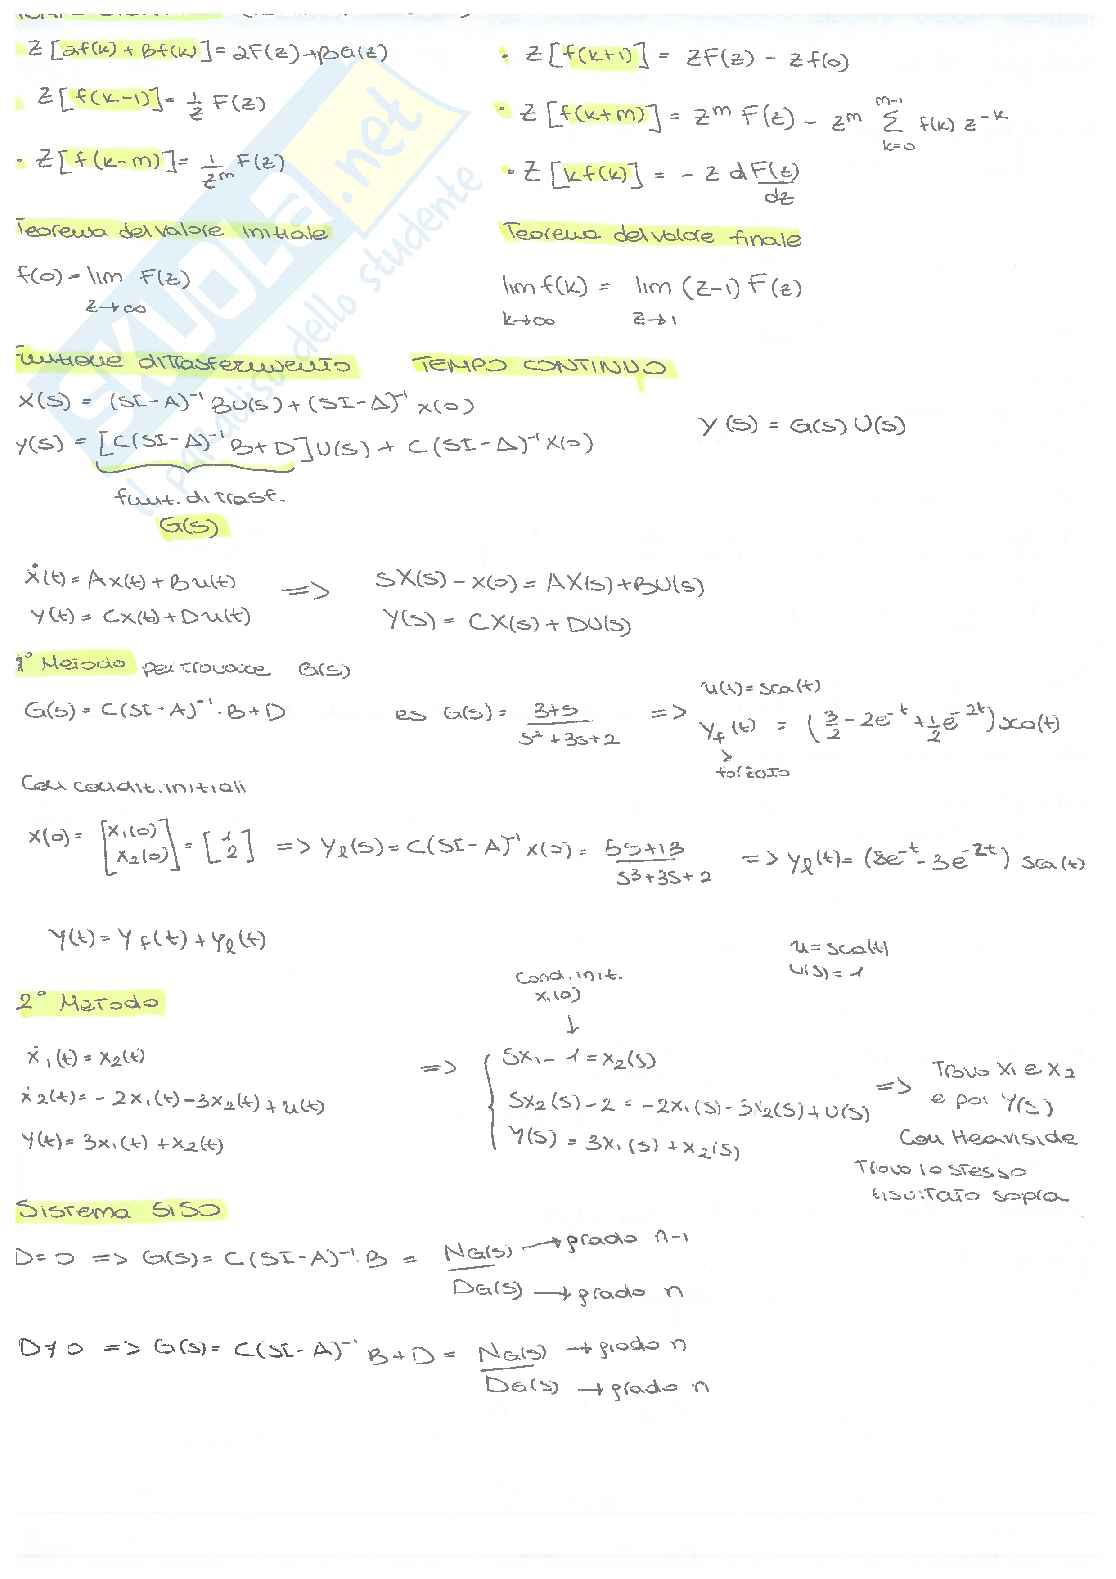 Z[αf(k) + βf(k)] = αF(z) + βG(z)
• Z[f(k-1)] = 1/z F(z)
• Z[f(k-m)] = 1/z^m F(z)
• Z[f(k+1)] = zF(z) - zf(0)
• Z[f(k+m)] = z^m F(z) - z^m Σ_{k=0}^{m-1} f(k) z^-k
• Z[kf(k)] = -z dF(z)/dz
Teorema del valore iniziale
f(0) = lim F(z)
z→∞
Teorema del valore finale
lim f(k) = lim (z-1) F(z)
k→∞ z→1
Funzione di trasferimento TEMPO CONTINUO
X(s) = (SI-A)^-1 BU(s) + (SI-A)^-1 x(0)
Y(s) = [C(SI-A)^-1 B+D]U(s) + C(SI-A)^-1 x(0)
Y(s) = G(s) U(s)
funz. di trasf.
G(s)
ẋ(t) = Ax(t) + Bu(t) => SX(s) - x(0) = AX(s) + BU(s)
y(t) = Cx(t) + Du(t) Y(s) = CX(s) + DU(s)
1° Metodo per trovare G(s)
G(s) = C(SI-A)^-1 · B + D
es G(s) = 3+s / s²+3s+2 =>
u(t) = sca(t)
y_f(t) = (3/2 - 2e^-t + 1/2 e^-2t) sca(t)
forzato
Con condit. iniziali
x(0) = [x1(0) x2(0)] = [1 2] => Y_l(s) = C(SI-A)^-1 x(0) = 5s+13 / s³+3s+2 => y_l(t) = (8e^-t - 3e^-2t) sca(t)
y(t) = y_f(t) + y_l(t)
u = sca(t)
U(s) = 1
2° Metodo
Cond. iniz.
x1(0)
↓
ẋ1(t) = x2(t) => Sx1 - 1 = x2(s)
ẋ2(t) = -2x1(t) - 3x2(t) + u(t) Sx2(s) - 2 = -2x1(s) - 3x2(s) + U(s)
y(t) = 3x1(t) + x2(t) Y(s) = 3x1(s) + x2(s)
=> Trovo x1 e x2
e poi Y(s)
Con Heaviside
Trovo lo stesso
risultato sopra
Sistema SISO
D=0 => G(s) = C(SI-A)^-1 · B = NG(s) → grado n-1
DG(s) → grado n
D≠0 => G(s) = C(SI-A)^-1 B + D = NG(s) → grado n
DG(s) → grado n
SKUOLA.net
il paradiso dello studente